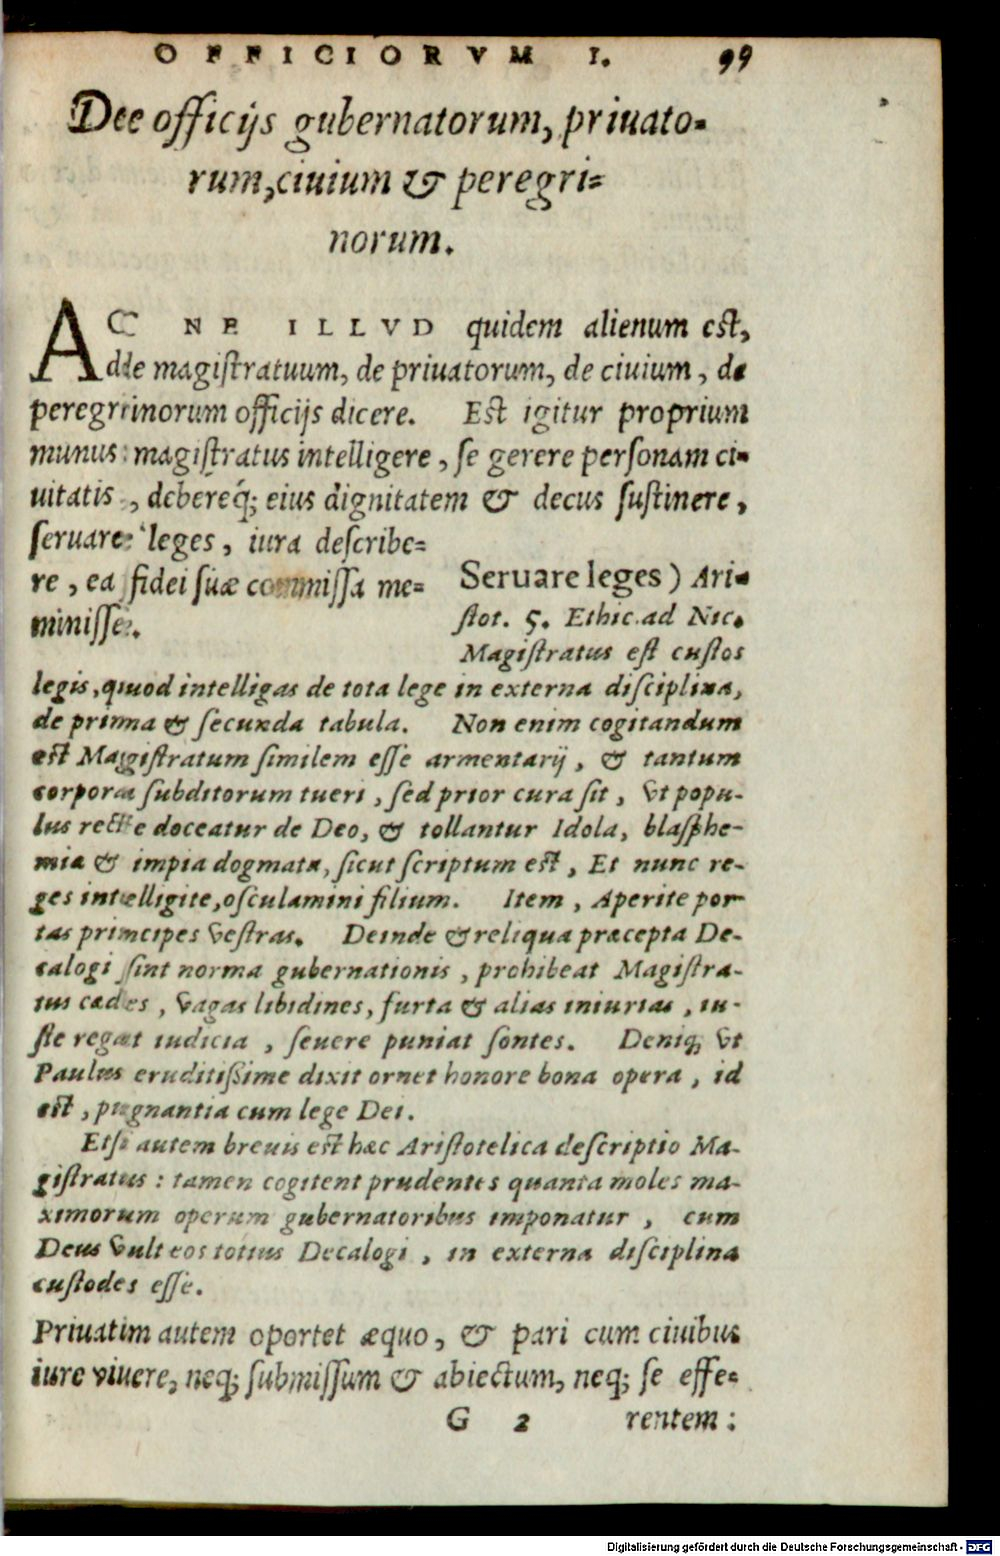 OFFICIORVM I. 99
De officijs gubernatorum, priuato-
rum, ciuium & peregri-
norum.
AC NE ILLVD quidem alienum est,
de magistratuum, de priuatorum, de ciuium, de
peregrinorum officijs dicere. Est igitur proprium
munus magistratus intelligere, se gerere personam ci-
uitatis, debereq; eius dignitatem & decus sustinere,
seruare leges, iura describe-
re, ea fidei suæ commissa me-
minisse.
Seruare leges) Ari-
stot. 5. Ethic. ad Nic.
Magistratus est custos
legis, quod intelligas de tota lege in externa disciplina,
de prima & secunda tabula. Non enim cogitandum
est Magistratum similem esse armentarij, & tantum
corpora subditorum tueri, sed prior cura sit, vt popu-
lus recte doceatur de Deo, & tollantur Idola, blasphe-
miæ & impia dogmata, sicut scriptum est, Et nunc re-
ges intelligite, osculamini filium. Item, Aperite por-
tas principes vestras. Deinde & reliqua præcepta De-
calogi sint norma gubernationis, prohibeat Magistra-
tus cædes, vagas libidines, furta & alias iniurias, iu-
ste regat iudicia, seuere puniat sontes. Deniq; vt
Paulus eruditißime dixit ornet honore bona opera, id
est, pugnantia cum lege Dei.
Etsi autem breuis est hæc Aristotelica descriptio Ma-
gistratus: tamen cogitent prudentes quanta moles ma-
ximorum operum gubernatoribus imponatur, cum
Deus vult eos totius Decalogi, in externa disciplina
custodes esse.
Priuatim autem oportet æquo, & pari cum ciuibus
iure viuere, neq; submissum & abiectum, neq; se effe-
G 2 rentem:
Digitalisierung gefördert durch die Deutsche Forschungsgemeinschaft - DFG